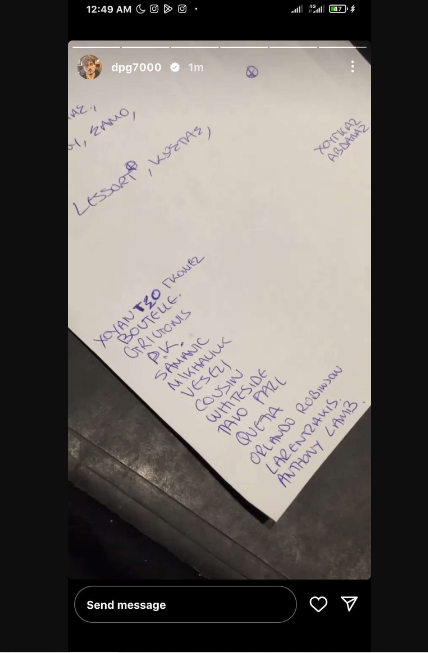 12:49 AM
87
dpg7000 1m
ΣΑΜΟ,
LESSORT, ΚΩΣΤΑΣ,
ΧΟΥΓΚΑΖ
ΧΟΥΑΝ ΤΣΟ ΓΚΟΜΕΖ
BOUTEILLE.
P.K.
SAMANIC
MIKHAILIUK
VESELY
COUSIN
WHITESIDE
QUETA
ORLANDO ROBINSON
LARENTZAKIS.
ANTHONY LAMB.
Send message